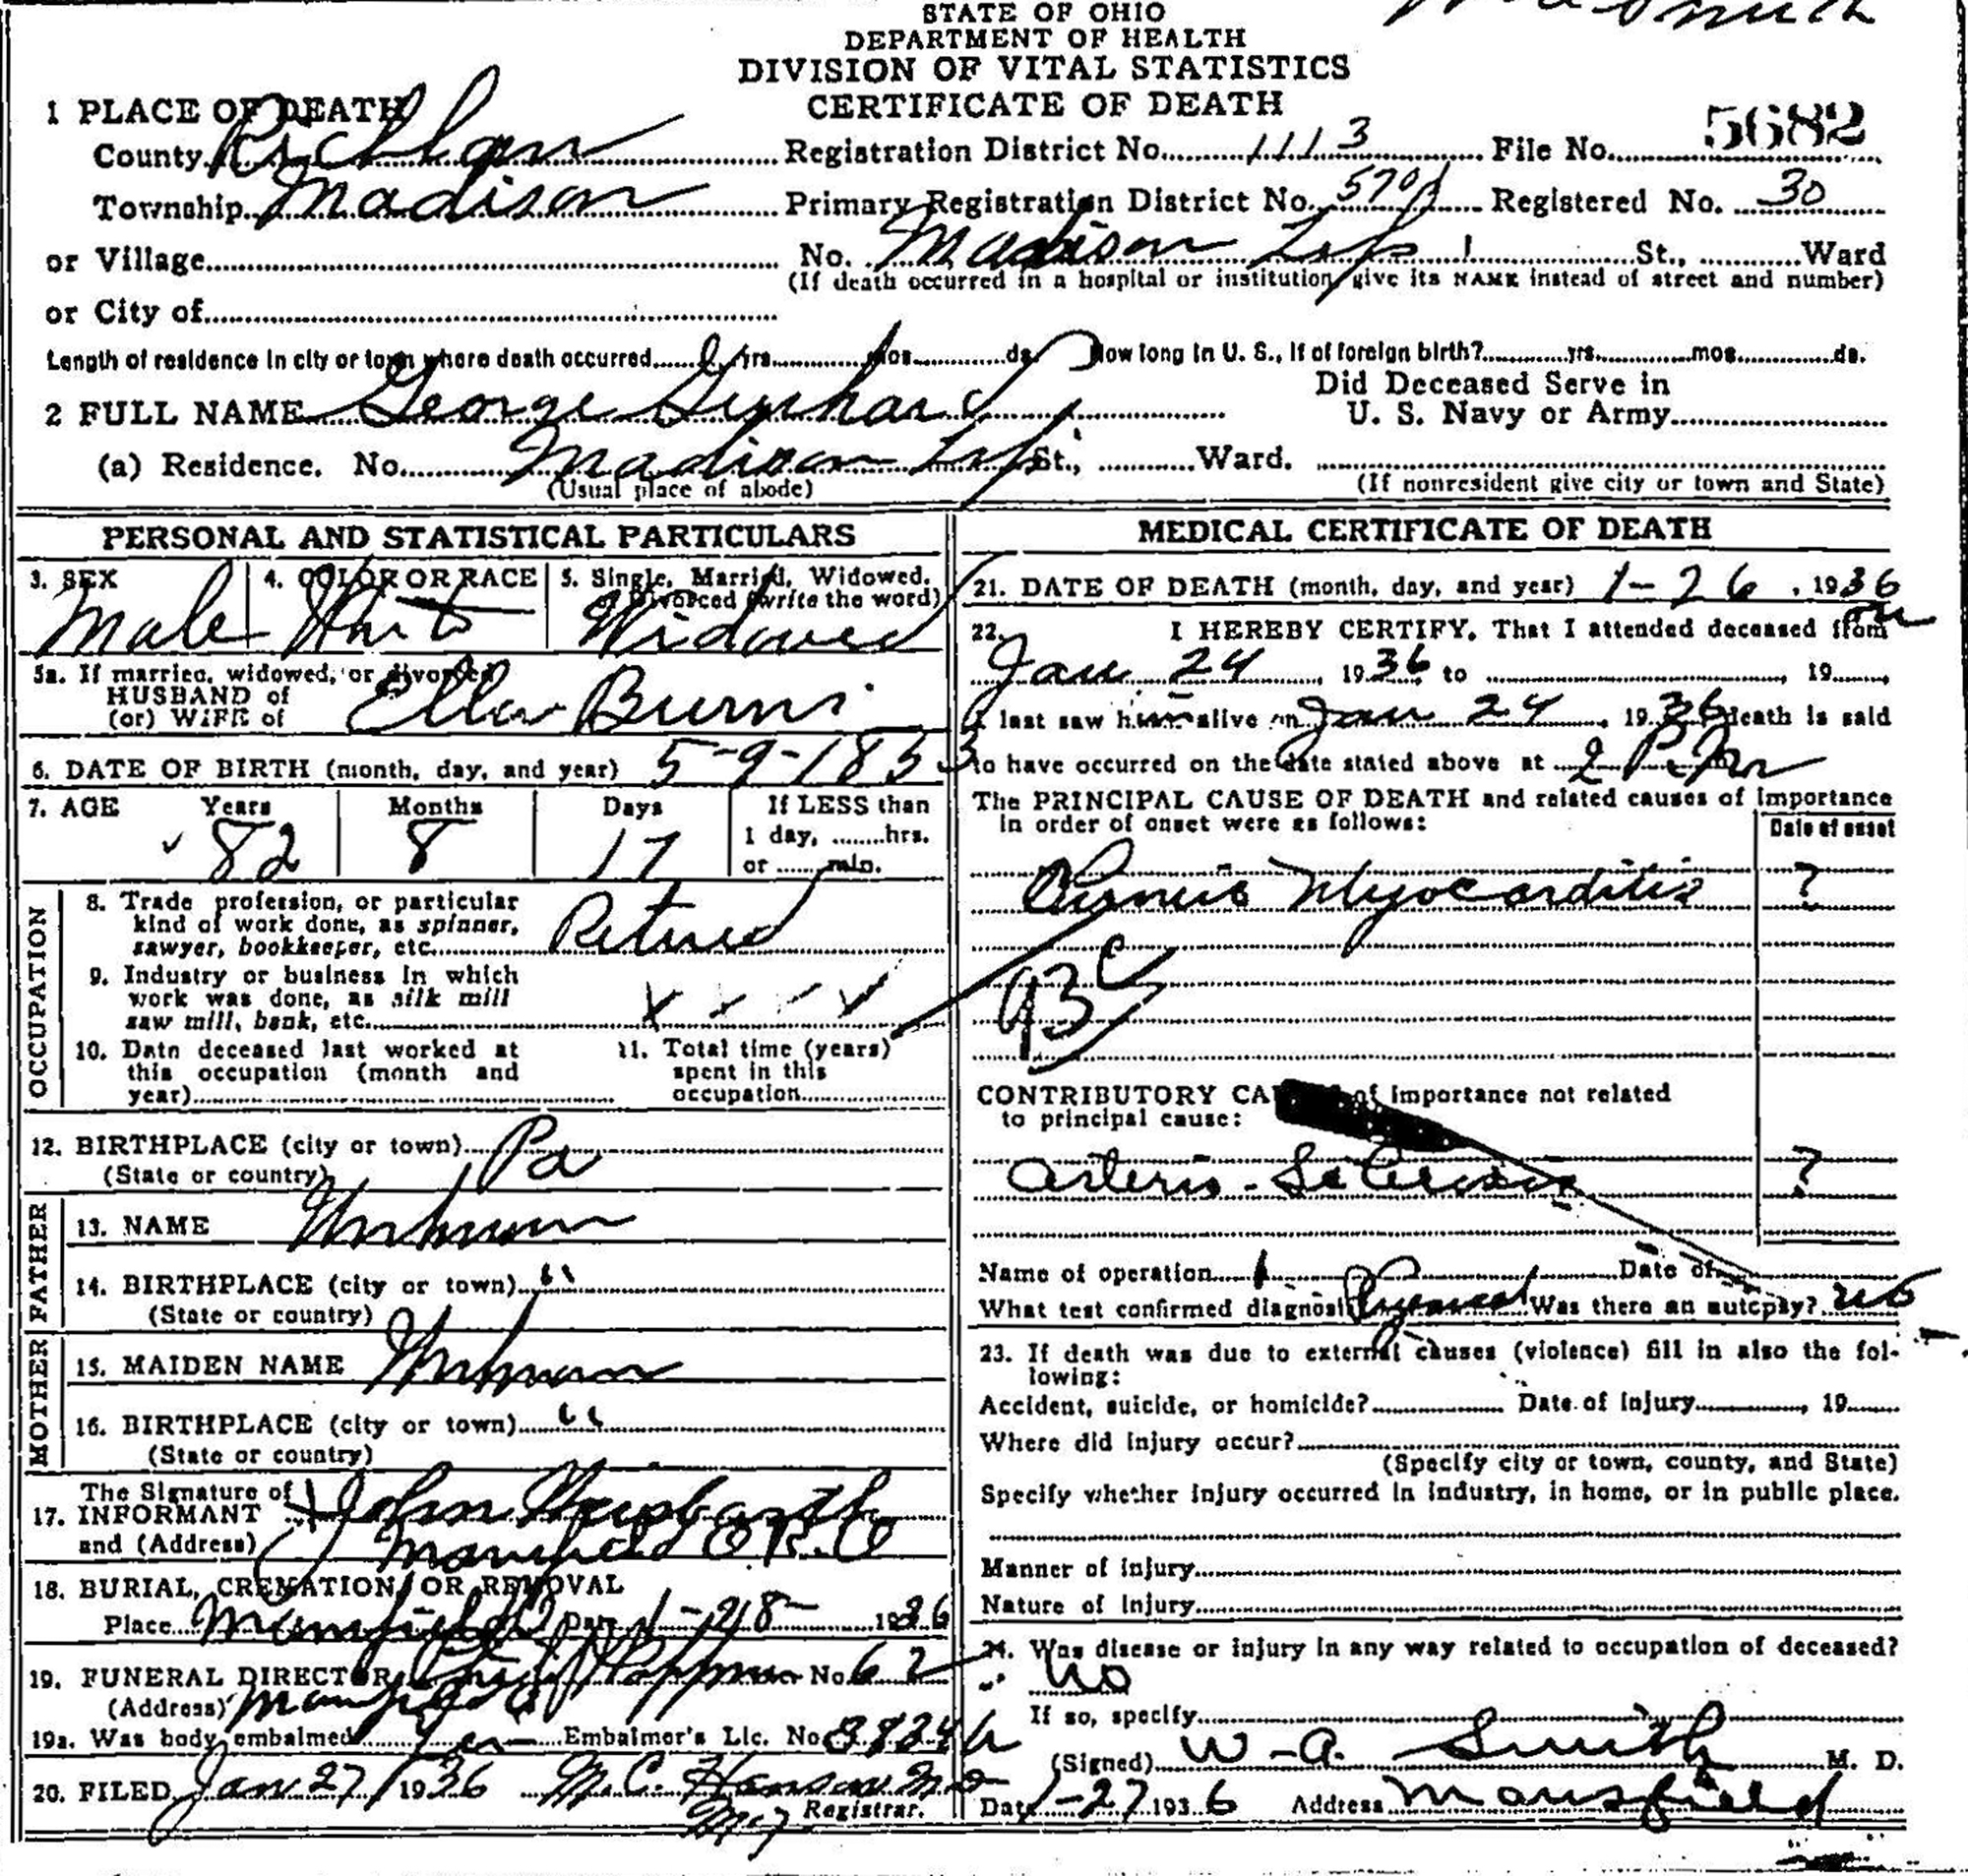 Smith
STATE OF OHIO
DEPARTMENT OF HEALTH
DIVISION OF VITAL STATISTICS
CERTIFICATE OF DEATH
1 PLACE OF DEATH
County Richlan Registration District No. 1113 File No. 5682
Township Madison Primary Registration District No. 5701 Registered No. 30
or Village No. Madison Tsp St., Ward
(If death occurred in a hospital or institution, give its NAME instead of street and number)
or City of
Length of residence in city or town where death occurred yrs. mos. ds. How long in U. S., if of foreign birth? yrs. mos. ds.
2 FULL NAME George Did Deceased Serve in
U. S. Navy or Army
(a) Residence. No. Madison Tsp St., Ward.
(Usual place of abode) (If nonresident give city or town and State)
PERSONAL AND STATISTICAL PARTICULARS
3. SEX 4. COLOR OR RACE 5. Single, Married, Widowed,
or Divorced (write the word)
Male White Widowed
5a. If married, widowed, or divorced
HUSBAND of
(or) WIFE of Ella Burns
6. DATE OF BIRTH (month, day, and year) 5-9-1853
7. AGE Years Months Days If LESS than
1 day, hrs.
or min.
82 8 17
OCCUPATION
8. Trade profession, or particular
kind of work done, as spinner,
sawyer, bookkeeper, etc. Retired
9. Industry or business in which
work was done, as silk mill
saw mill, bank, etc.
10. Date deceased last worked at
this occupation (month and
year)
11. Total time (years)
spent in this
occupation
12. BIRTHPLACE (city or town) Pa
(State or country)
FATHER
13. NAME Unknown
14. BIRTHPLACE (city or town) "
(State or country)
MOTHER
15. MAIDEN NAME Unknown
16. BIRTHPLACE (city or town) "
(State or country)
The Signature of
17. INFORMANT John
and (Address) Mansfield O R.
18. BURIAL, CREMATION, OR REMOVAL
Place Mansfield Date 1-28- 1936
19. FUNERAL DIRECTOR No. 62
(Address) Mansfield O
19a. Was body embalmed yes Embalmer's Lic. No. 3824 A
20. FILED Jan 27 1936 M.C. Hanson MD
Registrar.
MEDICAL CERTIFICATE OF DEATH
21. DATE OF DEATH (month, day, and year) 1-26, 1936
22. I HEREBY CERTIFY, That I attended deceased from on
Jan 24, 1936 to , 19
I last saw him alive on Jan 24, 1936 death is said
to have occurred on the date stated above at 2 P.M
The PRINCIPAL CAUSE OF DEATH and related causes of importance
in order of onset were as follows: Date of onset
Myocarditis ?
93c
CONTRIBUTORY of importance not related
to principal cause:
Arterio-Sclerosis ?
Name of operation Date of
What test confirmed diagnosis Physical Was there an autopsy? no
23. If death was due to external causes (violence) fill in also the fol-
lowing:
Accident, suicide, or homicide? Date of injury , 19
Where did injury occur?
(Specify city or town, county, and State)
Specify whether injury occurred in industry, in home, or in public place.
Manner of injury
Nature of injury
24. Was disease or injury in any way related to occupation of deceased?
no
If so, specify
(Signed) W-A. Smith M. D.
Date 1-27 1936 Address Mansfield